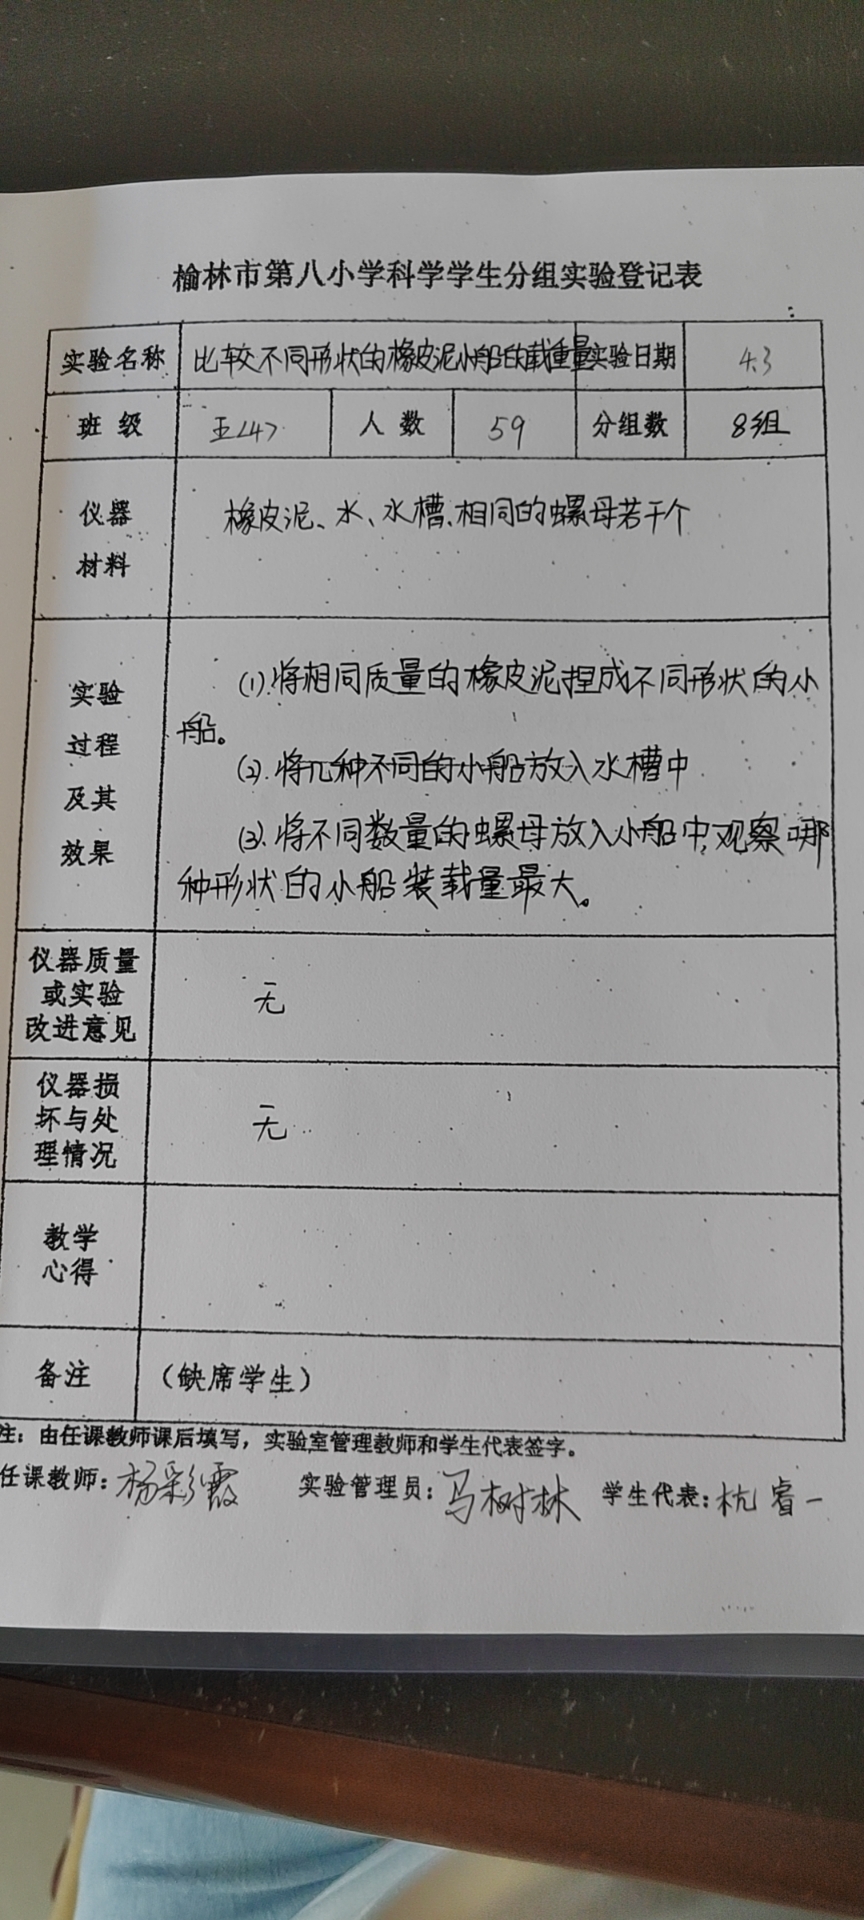 榆林市第八小学科学学生分组实验登记表
实验名称 比较不同形状的橡皮泥小船的载重量 实验日期 4.3
班级 五<4> 人数 59 分组数 8组
仪器
材料
橡皮泥、水、水槽、相同的螺母若干个
实验
过程
及其
效果
(1).将相同质量的橡皮泥捏成不同形状的小
船。
(2).将几种不同的小船放入水槽中
(3).将不同数量的螺母放入小船中,观察哪
种形状的小船装载量最大。
仪器质量
或实验
改进意见
无
仪器损
坏与处
理情况
无
教学
心得
备注 (缺席学生)
注：由任课教师课后填写，实验室管理教师和学生代表签字。
任课教师：杨彩霞 实验管理员：马树林 学生代表：杭睿一